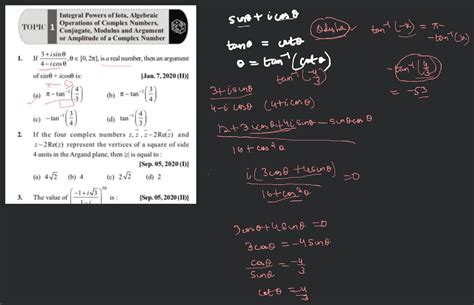 TOPIC 1
Integral Powers of Iota, Algebraic
Operations of Complex Numbers,
Conjugate, Modulus and Argument
or Amplitude of a Complex Number
1. If (3 + i sin θ)/(4 − i cos θ), θ ∈ [0, 2π], is a real number, then an argument
of sinθ + icosθ is: [Jan. 7, 2020 (II)]
(a) π − tan⁻¹(4/3) (b) π − tan⁻¹(3/4)
(c) −tan⁻¹(3/4) (d) tan⁻¹(4/3)
2. If the four complex numbers z, z̄, z̄ − 2Re(z̄) and
z − 2Re(z) represent the vertices of a square of side
4 units in the Argand plane, then |z| is equal to :
[Sep. 05, 2020 (I)]
(a) 4√2 (b) 4 (c) 2√2 (d) 2
3. The value of ((−1 + i√3)/(1 − i))³⁰ is : [Sep. 05, 2020 (II)]
sinθ + i cosθ
tanθ = cotθ
θ = tan⁻¹(cotθ)
tan⁻¹(−4/3)
3 + i sinθ
4 − i cosθ (4 + i cosθ)
12 + 3i cosθ + 4i sinθ − sinθ cosθ
16 + cos²θ
i(3cosθ + 4sinθ) = 0
16 + cos²θ
3cosθ + 4sinθ = 0
3cosθ = −4sinθ
cosθ/sinθ = −4/3
cotθ = −4/3
tan⁻¹(−x) = π −
tan⁻¹(x)
−tan⁻¹(4/3)
= −53